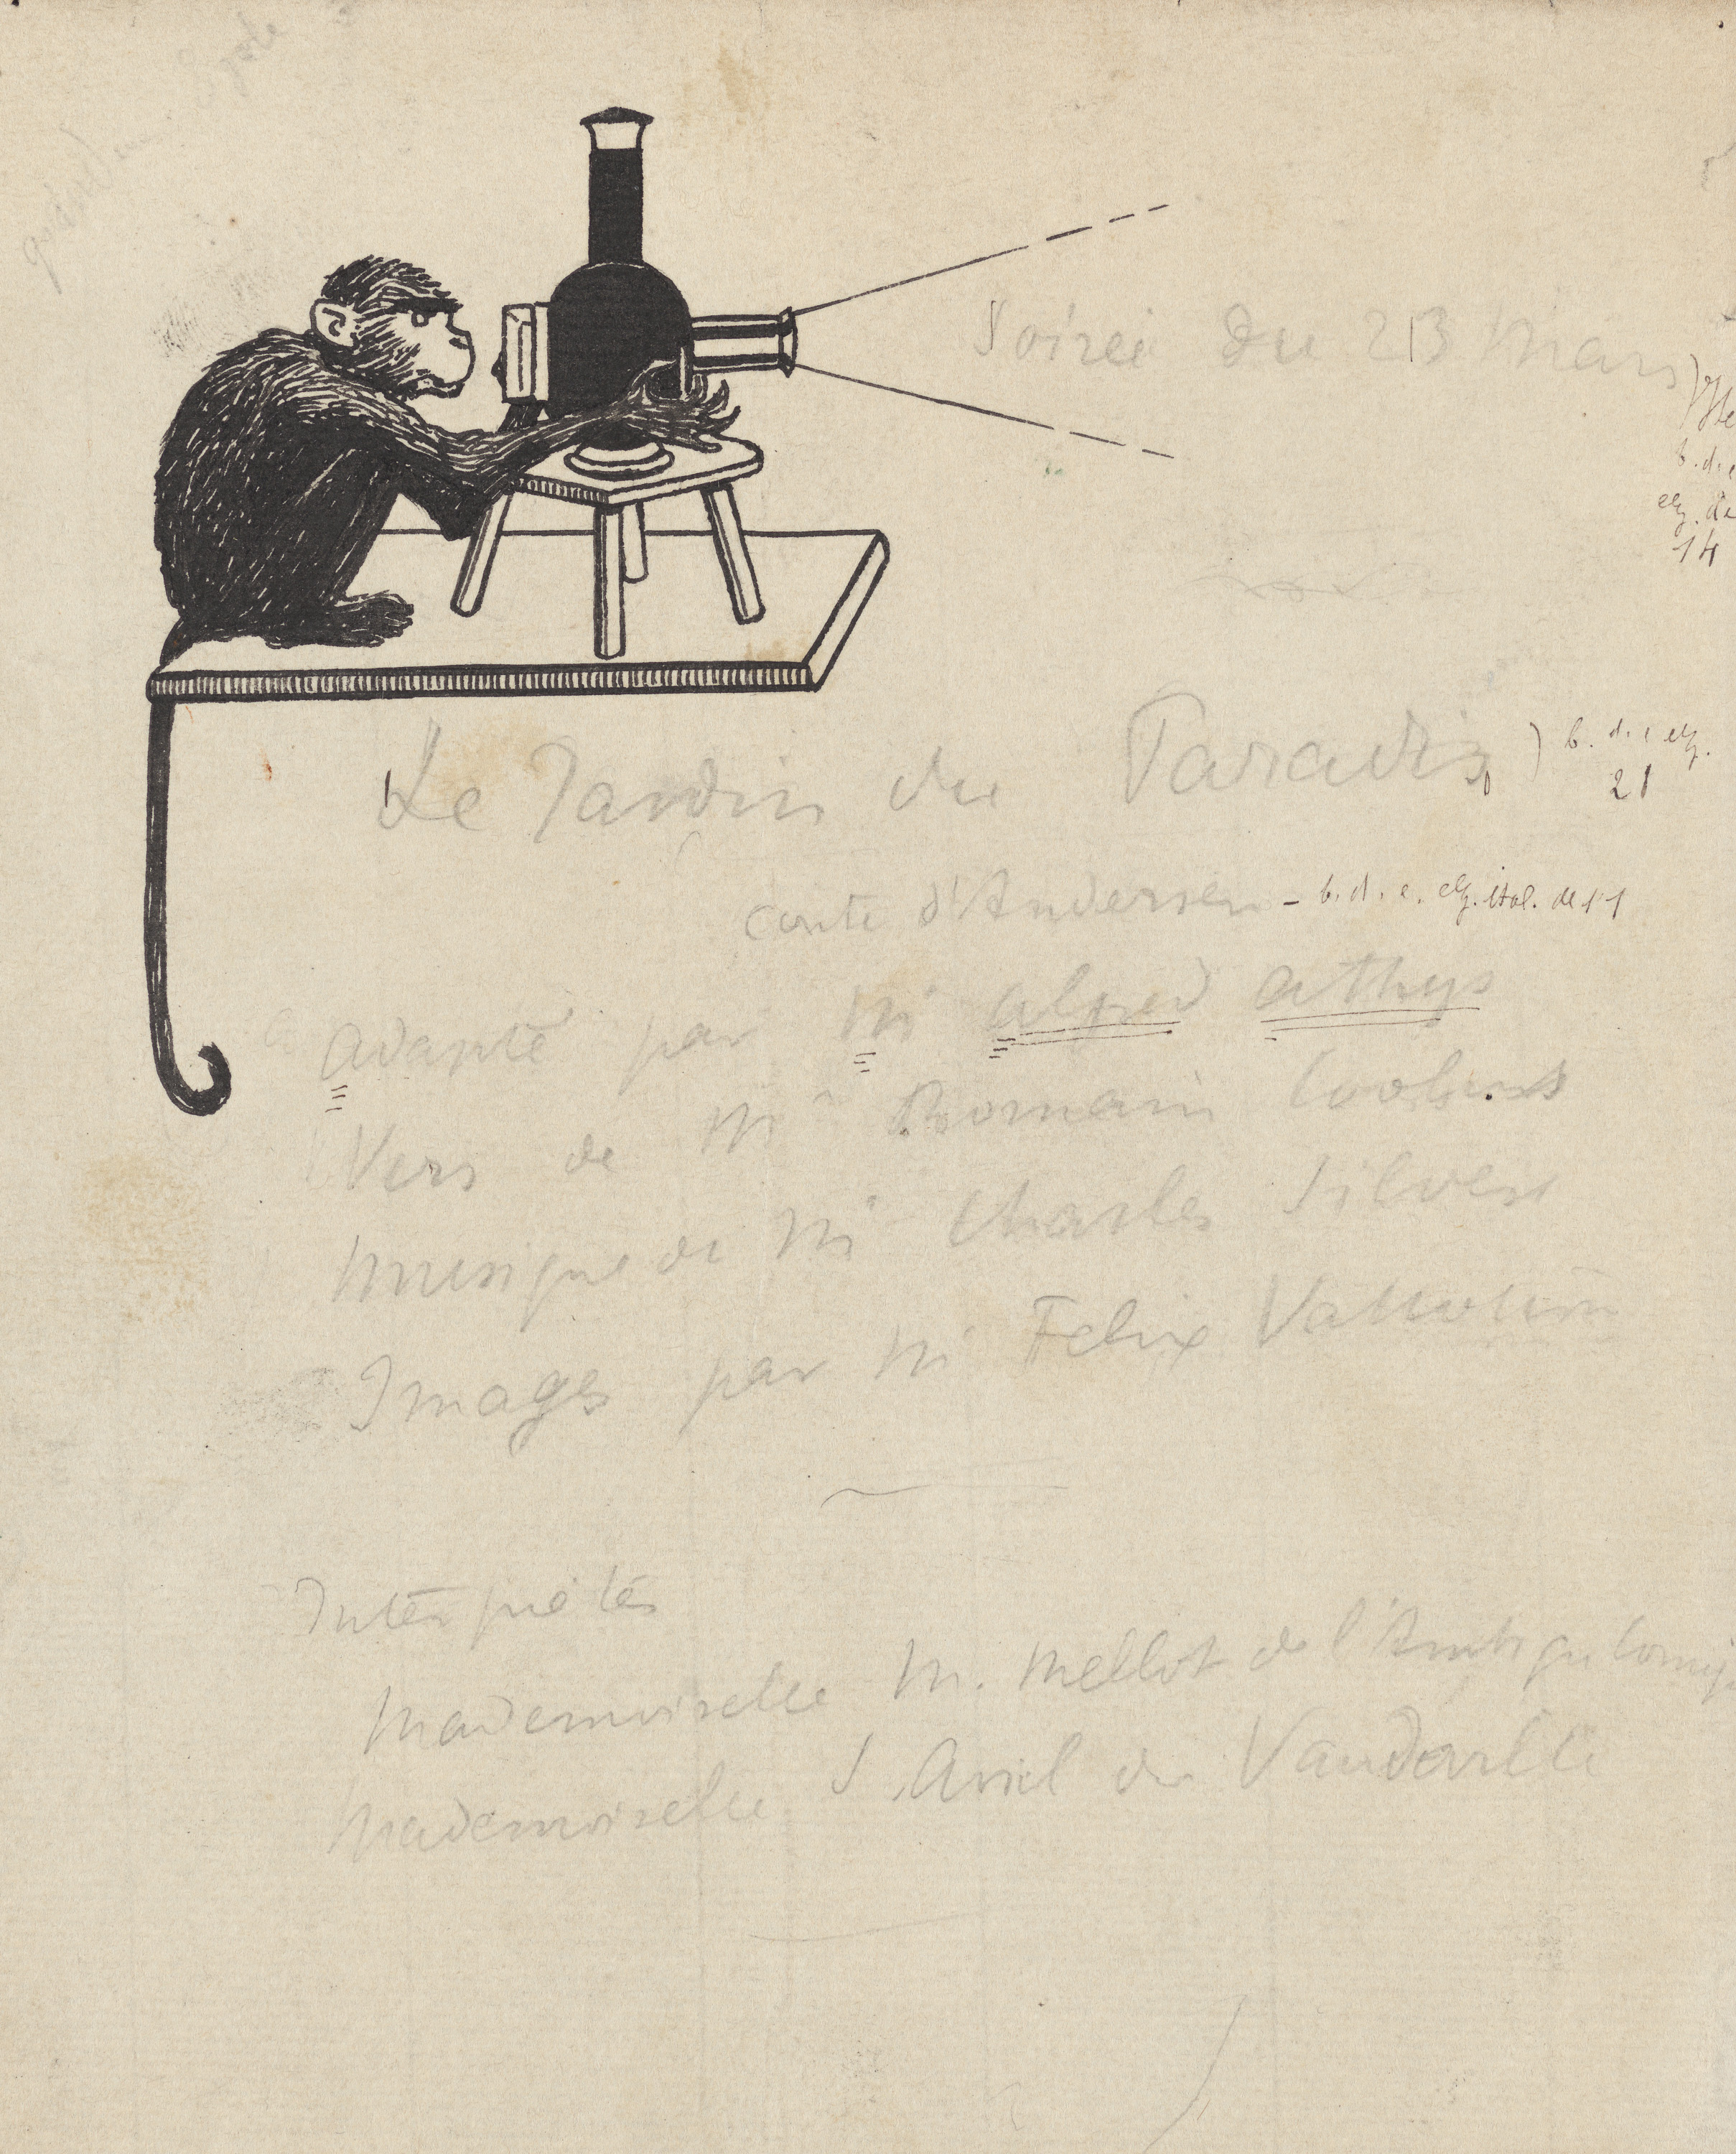 Soirée du 23 Mars
14
Le Jardin du Paradis
) b. d. c. elz.
21
conte d'Andersen - b. d. c. elz. ital. de 11
Adapté par Mr Alfred Athys
Vers de Mr Romain Coolus
Musique de Mr Charles Silver
Images par Mr Felix Vallotton
Interprètes
Mademoiselle M. Mellot de l'Ambigu Comiq
Mademoiselle S. Avril du Vaudeville